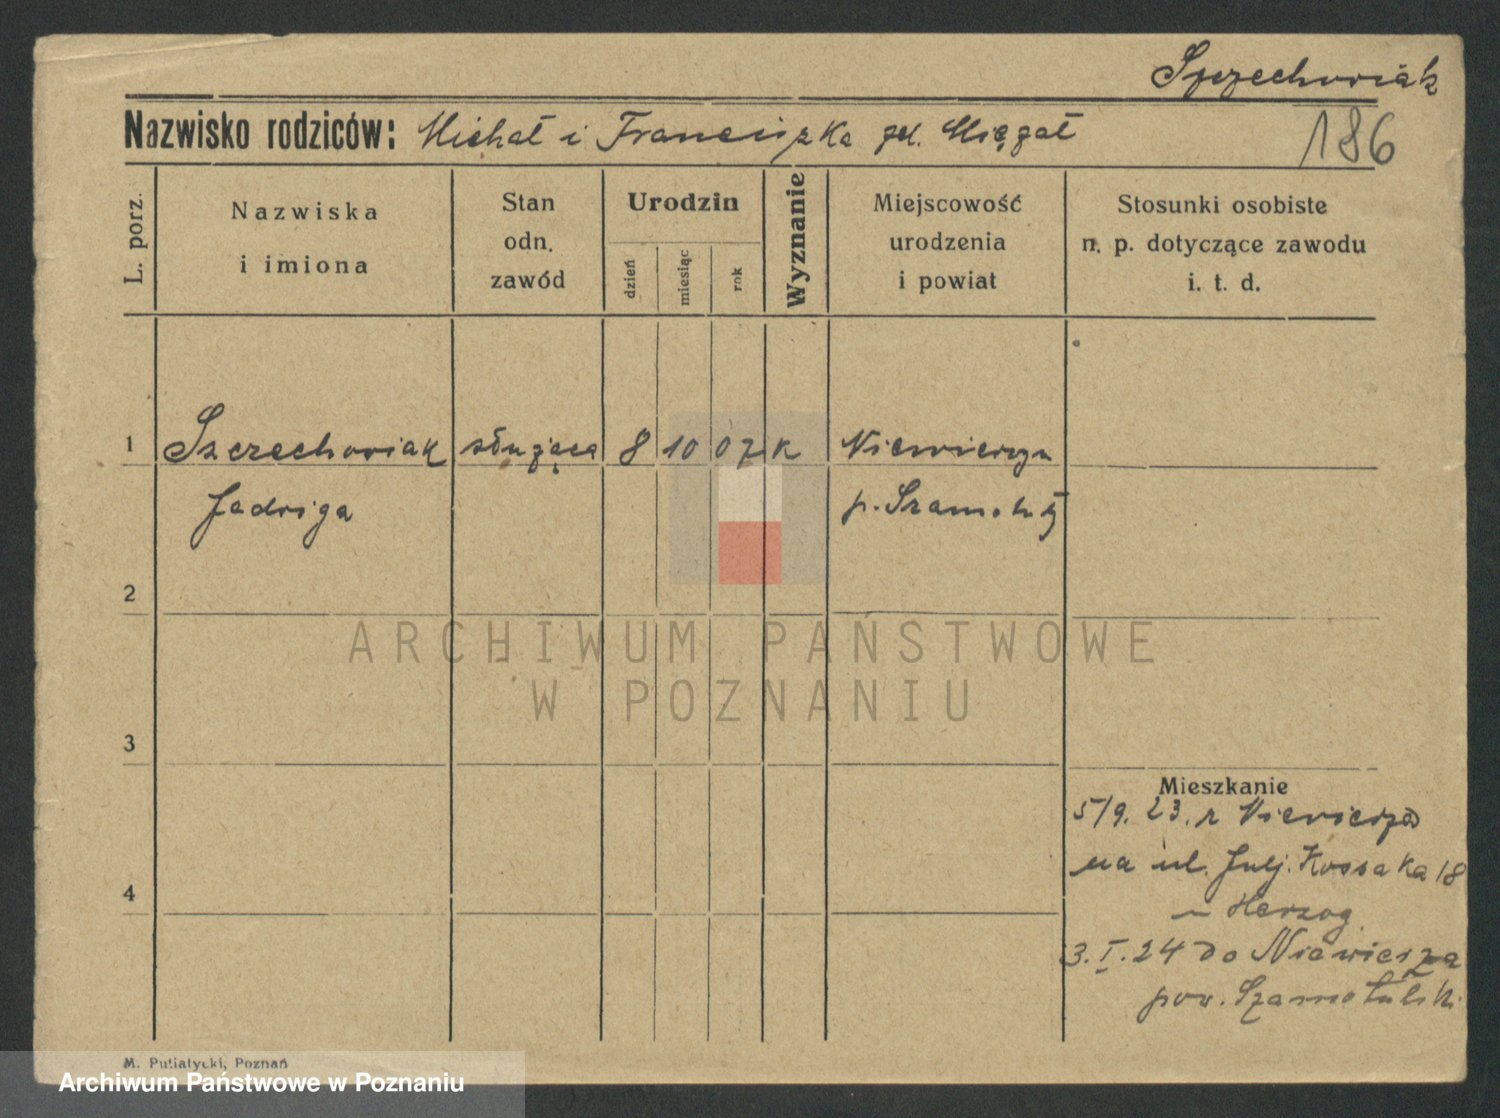 Szczechowiak
Nazwisko rodziców: Michał i Franciszka zd. Migzał
186
L. porz.
Nazwiska
i imiona
Stan
odn.
zawód
Urodzin
dzień
miesiąc
rok
Wyznanie
Miejscowość
urodzenia
i powiat
Stosunki osobiste
n. p. dotyczące zawodu
i. t. d.
1 Szczechowiak służąca 8 10 07 K Niewierzu
Jadwiga p. Szamotuły
2
ARCHIWUM PAŃSTWOWE
W POZNANIU
3
Mieszkanie
5/9. 23. z Niewierza
na ul. Julj. Kossaka 18
Herzog
4
3. I. 24 do Niewierza
pow. Szamotulski.
M. Putiatycki, Poznań
Archiwum Państwowe w Poznaniu